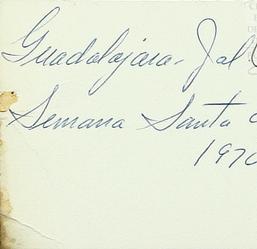 Guadalajara - Jal
Semana Santa
1970